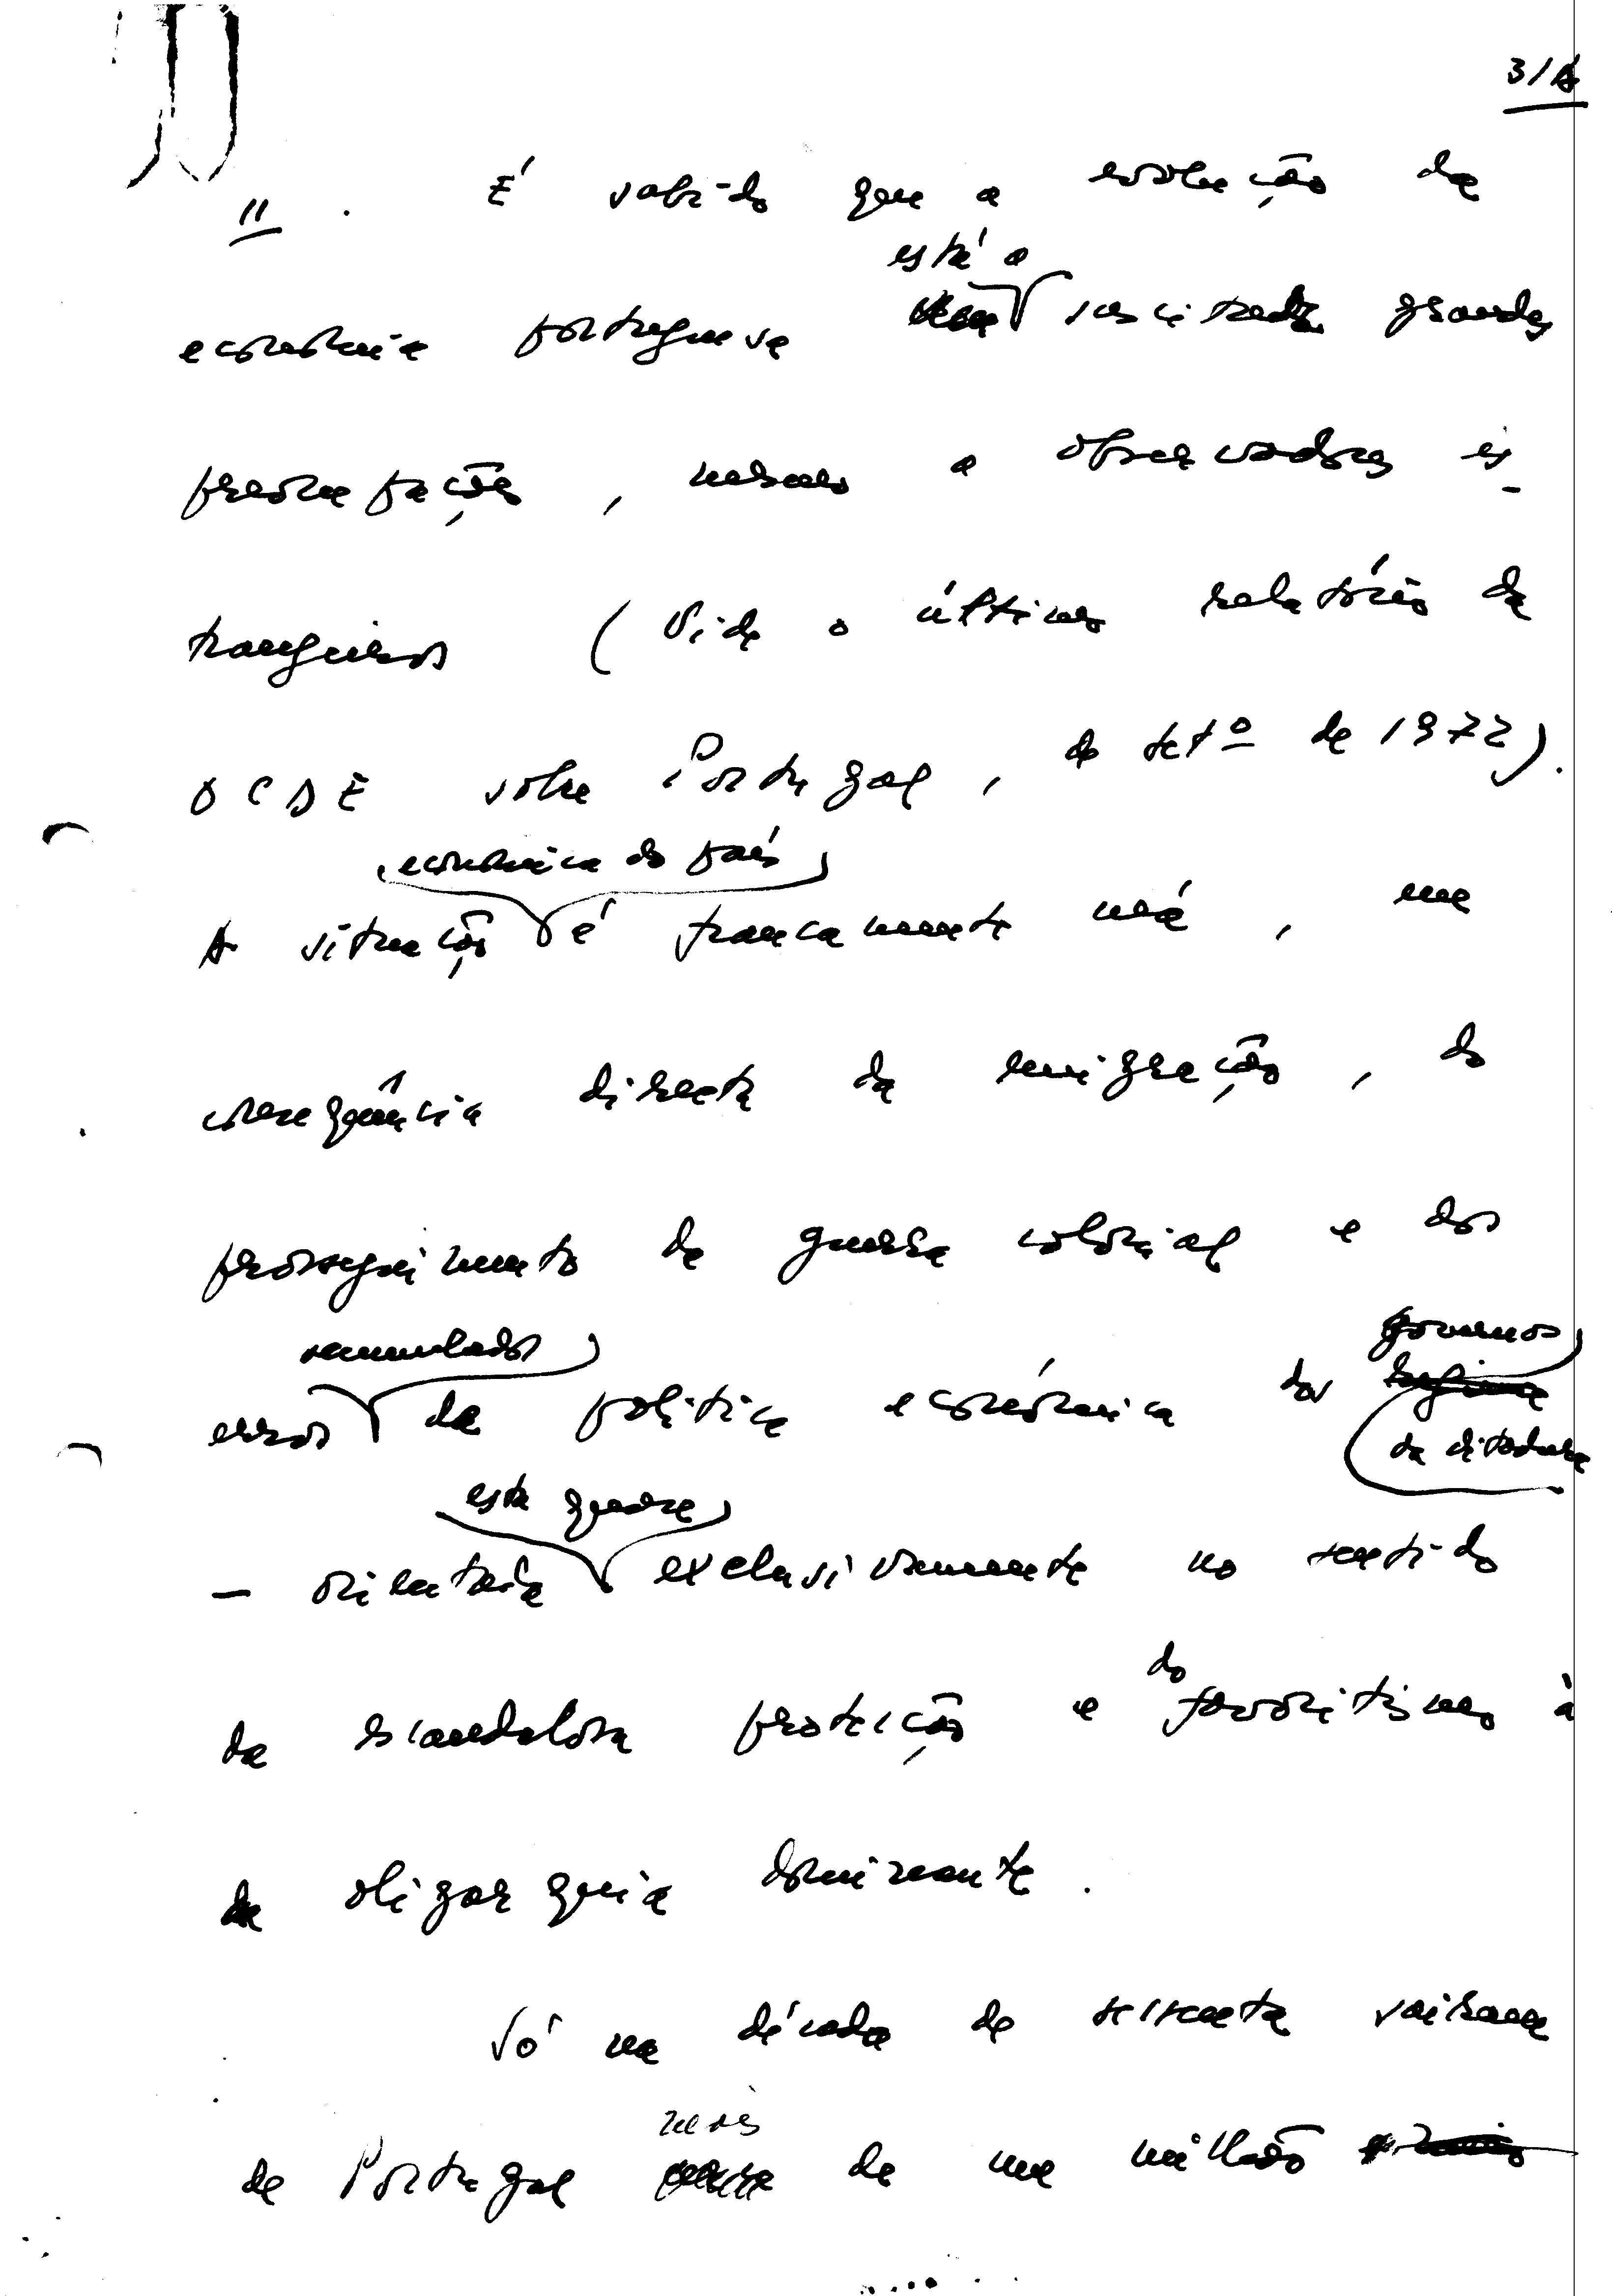 3/A
11. É sabido que a evolução da
está a
economia portuguesa suscitar grandes
preocupações, mesmo a observadores es-
trangeiros (Vide o último relatório da
OCDE sobre Portugal, de setº de 1972).
económica do país
A situação é francamente má, em
consequência directa da emigração, do
prosseguimento da guerra colonial e dos
acumulados governos
erros da política económica dos regime
da ditadura
esta quase
- orientada exclusivamente no sentido
do
da escandalosa protecção e favoritismo à
da oligarquia dominante.
Só na década de sessenta saíram
mais
de Portugal de um milhão